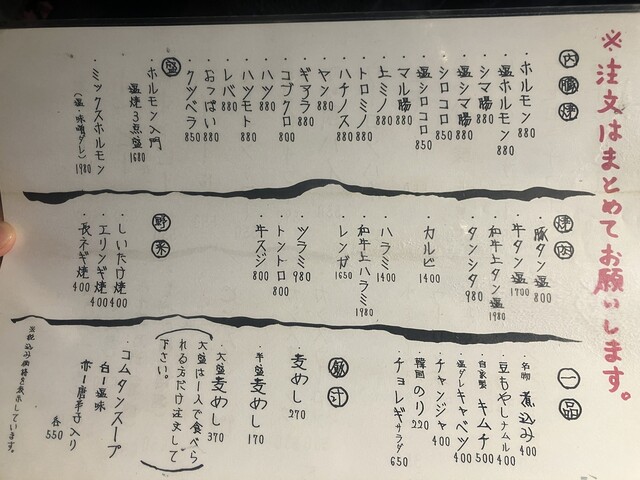 ※注文はまとめてお願いします。
内臓焼
・ホルモン 880
・塩ホルモン 880
・シマ腸 880
・塩シマ腸 880
・シロコロ 850
・塩シロコロ 850
・マル腸 880
・上ミノ 880
・トロミノ 880
・ハチノス 880
・ヤン 880
・ギアラ 880
・コブクロ 800
・ハツ 880
・ハツモト 880
・レバ 880
・おっぱい 880
・クツベラ 850
盛
・ホルモン入門
塩焼・3点盛 1680
・ミックスホルモン
(塩・味噌ダレ) 1980
焼肉
・豚タン塩 800
・牛タン塩 1700
・和牛上タン塩 1980
・タンシタ 980
・カルビ 1400
・ハラミ 1400
・和牛上ハラミ 1980
・レンガ 1650
・ツラミ 980
・トントロ 800
・牛スジ 800
野菜
・しいたけ焼 400
・エリンギ焼 400
・長ネギ焼 400
一品
・名物 煮込み 400
・豆もやしナムル 400
・自家製 キムチ 500
・塩ダレキャベツ 400
・チャンジャ 400
・韓国のり 220
・チョレギサラダ 650
飯汁
・麦めし 270
・半盛麦めし 170
・大盛麦めし 370
(大盛は1人で食べら
れる方だけ注文して
下さい。)
・コムタンスープ
白ー塩味
赤ー唐辛子入り
各550
※税込み価格を表示しています。